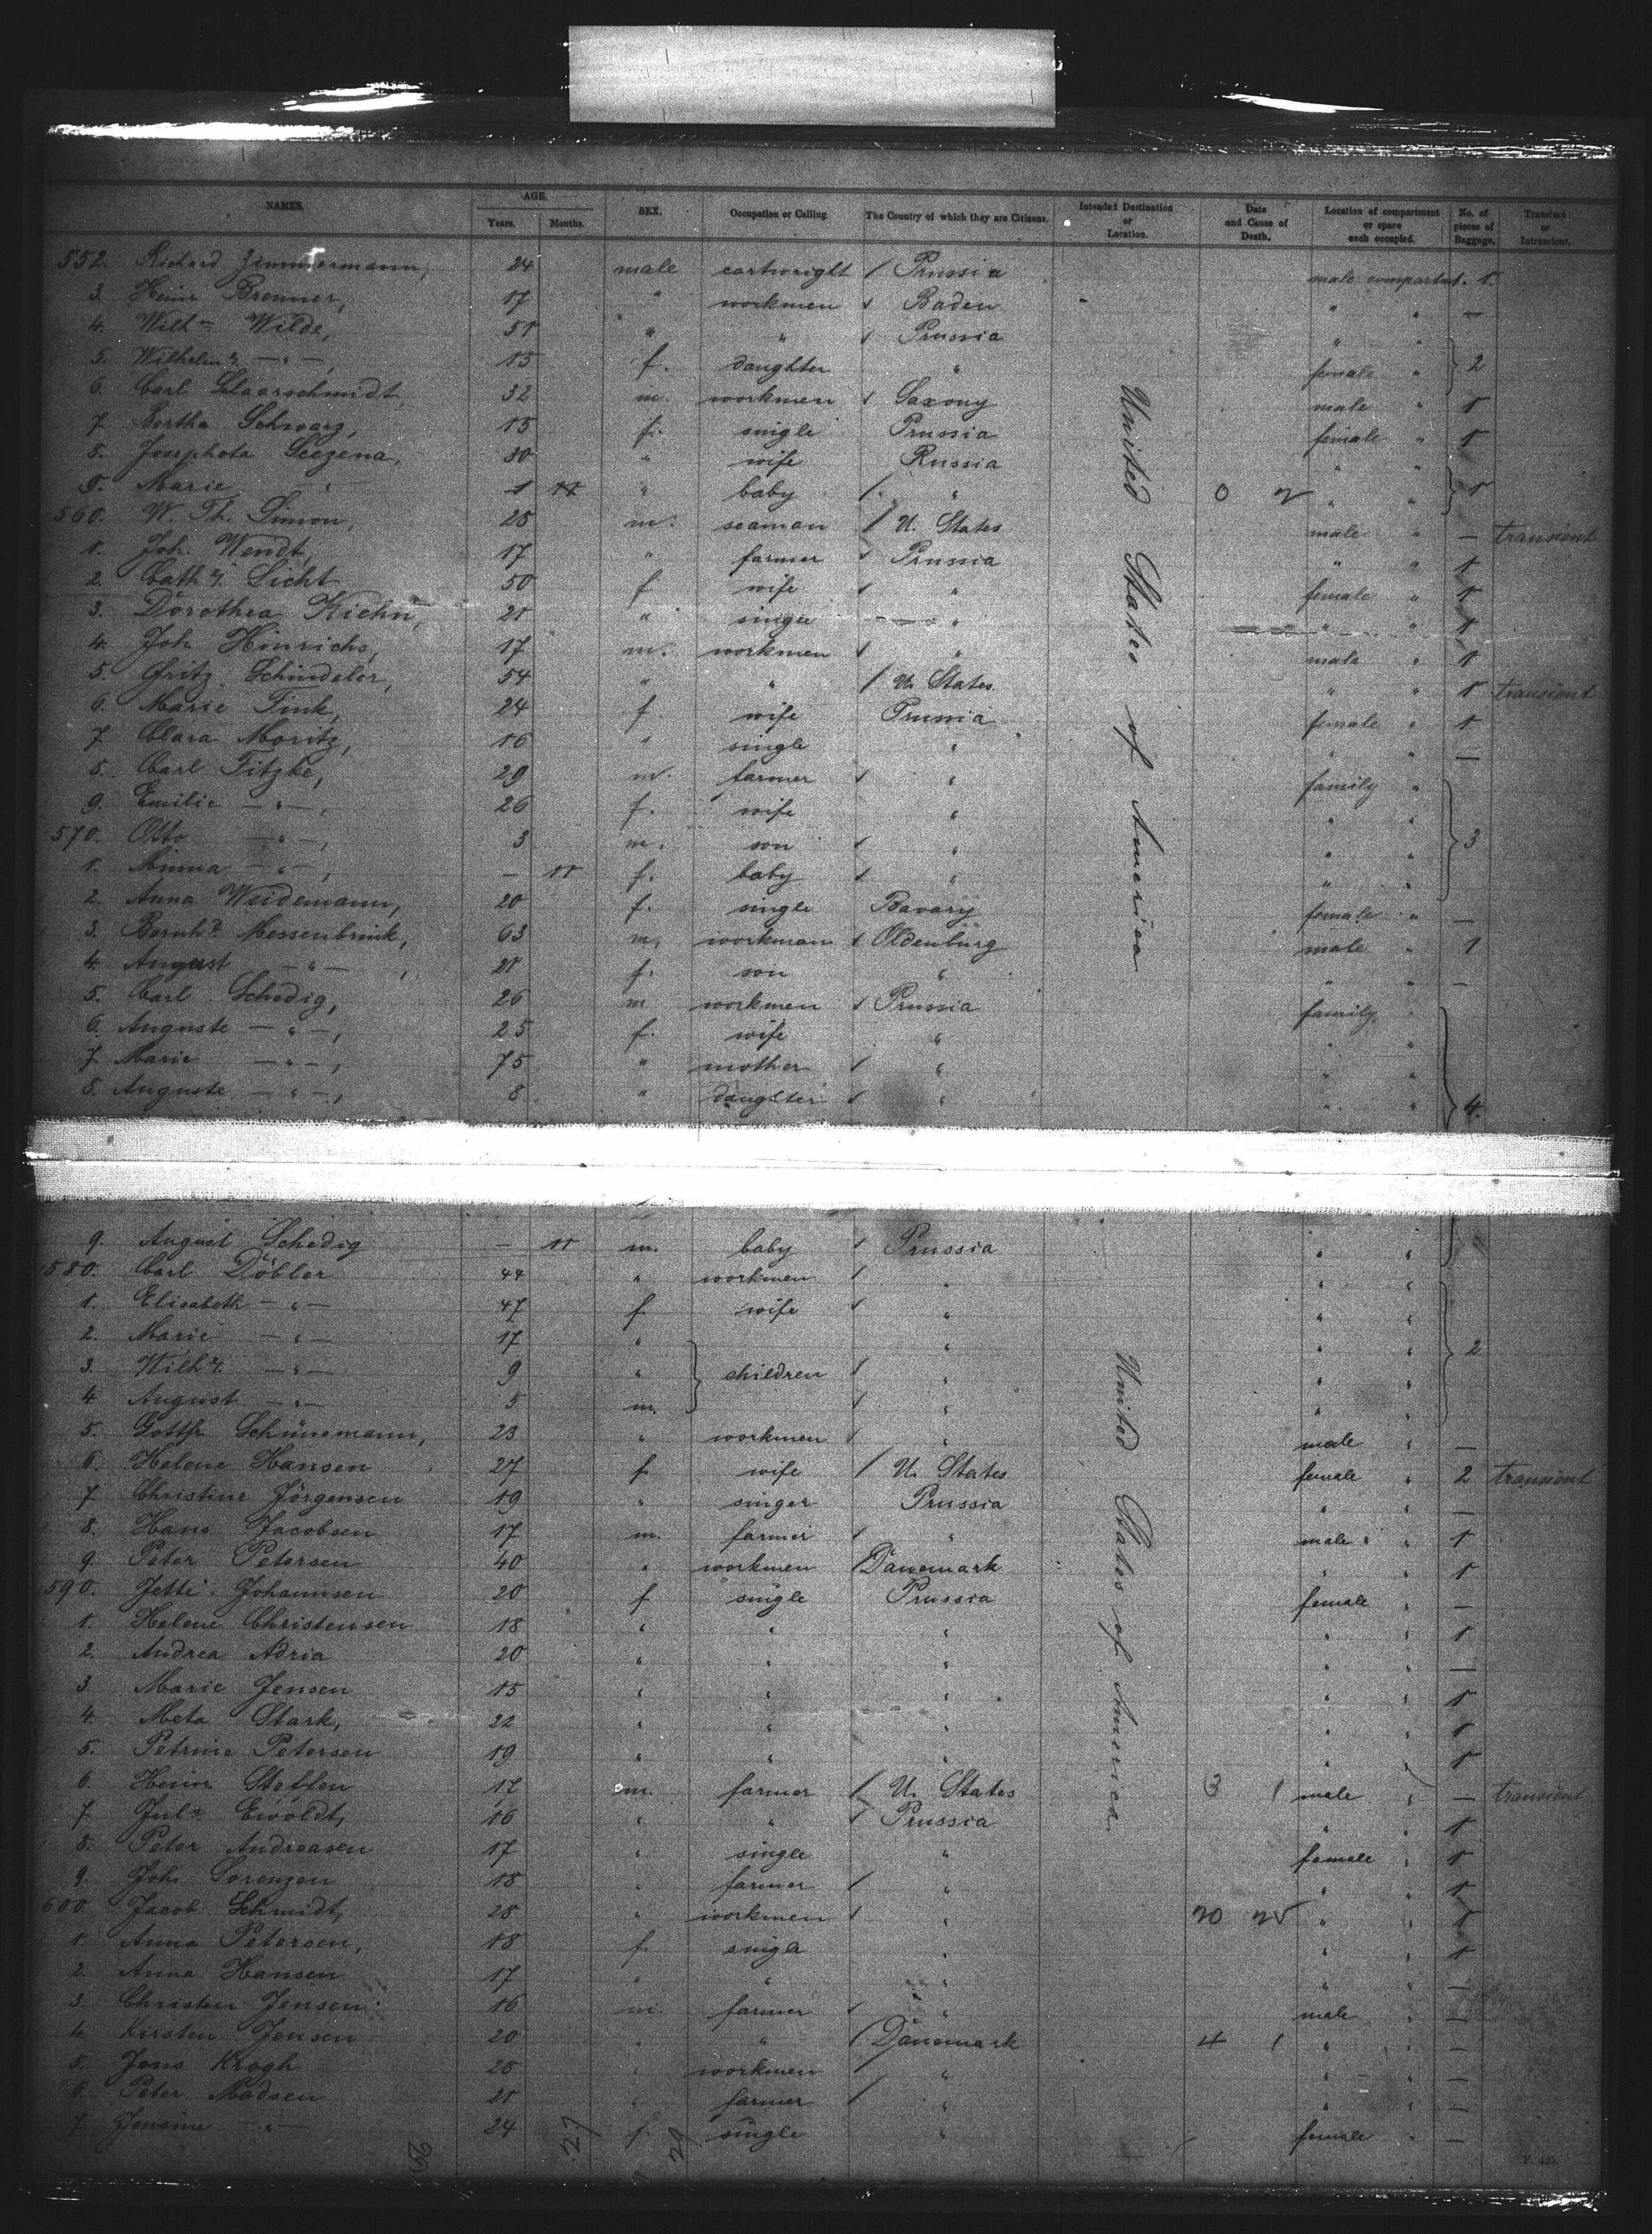 NAMES. AGE. Years. Months. SEX. Occupation or Calling The Country of which they are Citizens. Intended Destination or Location. Date and Cause of Death. Location of compartment or space each occupied. No. of pieces of Baggage. Transient or Intransient.
552. Richard Zimmermann, 24 male cartwright / Prussia male compartmt. 1
3. Heinr Brenner, 17 " workmen Baden " " —
4. Wilhm Wilde, 51 " " Prussia " "
5. Wilhelme —"—, 15 f. daughter " female " 2
6. Carl Haarschmidt, 32 m. workmen Saxony male " 1
7. Bertha Schwarz, 15 f. single Prussia female " 1
8. Josephota 30 " wife Russia " "
9. Marie —"— 1 11 " baby / " 0 2 " " 1
560. W. Th. Simon, 28 m. seaman / U. States male " — transient
1. Joh. Wendt, 17 " farmer Prussia " " 1
2. Cathe. Licht 50 f wife " female " 1
3. Dorothea Kiehn, 21 " single — " " " 1
4. Joh Hinrichs, 17 m. workmen " male " 1
5. Fritz Schindeler, 54 " " / U. States. " " 1 transient
6. Marie Fink, 24 f. wife Prussia female " 1
7. Clara Moritz, 16 " single " " " —
8. Carl Titzke, 29 m. farmer " family "
9. Emilie —"—, 26 f. wife " " "
570. Otto —"—, 3 m. son " " " 3
1. Minna —"—, — 11 f. baby " " "
2. Anna Weidemann, 20 f. single Bavary female " —
3. Bernhd. Messenbrink, 63 m. workman Oldenburg male " 1
4. August —"—, 21 f. son " " " —
5. Carl Schedig, 26 m workmen Prussia family "
6. Auguste —"—, 25 f. wife " " "
7. Marie —"—, 75 " mother " " "
8. Auguste —"—, 8 " daughter " " " 4.
United States of America
9. August Schedig — 11 m. baby Prussia " "
580. Carl Döbler 44 " workmen / " " "
1. Elisabeth —"— 47 f wife " " "
2. Marie —"— 17 " " " " 2
3. Wilhe. —"— 9 " children " " "
4. August —"— 5 m. " " "
5. Gottfr. Schünemann, 23 " workmen " male " —
6. Helene Hansen 27 f wife / U. States female " 2 transient
7. Christine Jörgensen 19 " singer Prussia " " —
8. Hans Jacobsen 17 m. farmer " male " 1
9. Peter Petersen 40 " workmen / Dänemark " " 1
590. Jette Johannsen 20 f single Prussia female " —
1. Helene Christensen 18 " " " " " 1
2. Andrea Adria 20 " " " " " —
3. Marie Jensen 15 " " " " " 1
4. Meta Stark, 22 " " " " " 1
5. Petrine Petersen 19 " " " " " 1
6. Heinr. Steffen 17 m. farmer / U. States 3 1 male " — transient
7. Juls Ewoldt, 16 " " Prussia " " 1
8. Peter Andreasen 17 " single " female " 1
9. Joh. Lorenzen 18 " farmer / " " " 1
600. Jacob Schmidt, 28 " workmen " 20 " " 1
1. Anna Petersen, 18 f. single " " " 1
2. Anna Hansen 17 " " " " " —
3. Christen Jensen 16 m. farmer " male " —
4. Kirsten Jensen 20 " " / Dänemark 4 1 " " —
5. Jens Krogh 28 " workmen " " " —
6. Peter Madsen 21 " farmer / " " " —
7. —"— 24 f. single " female " —
United States of America